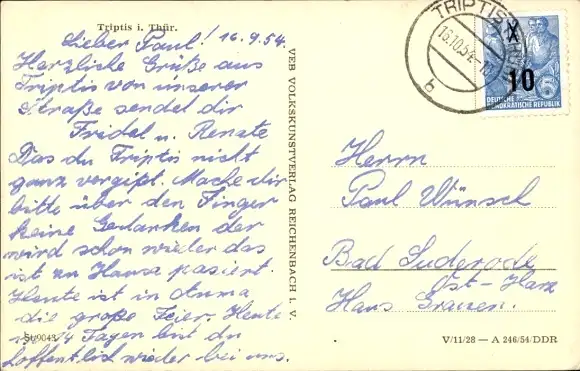 Triptis i. Thür.
Lieber Paul! 16.9.54.
Herzliche Grüße aus
Triptis von unserer
Straße sendet dir
Fridel u. Renate
Das du Triptis nicht
ganz vergißt. Mache dir
bitte über den Finger
keine Gedanken der
wird schon wieder das
ist zu Hause pasiert.
Heute ist in Auma
die große Feier. Heute
14 Tagen bist du
hoffentlich wieder bei uns.
St/9043
VEB VOLKSKUNSTVERLAG REICHENBACH I. V.
TRIPTIS
16.10.54
b
X
10
5
DEUTSCHE
DEMOKRATISCHE REPUBLIK
Herrn
Paul Wünsch
Bad Suderode
Ost-Harz
Haus
V/11/28 — A 246/54/DDR